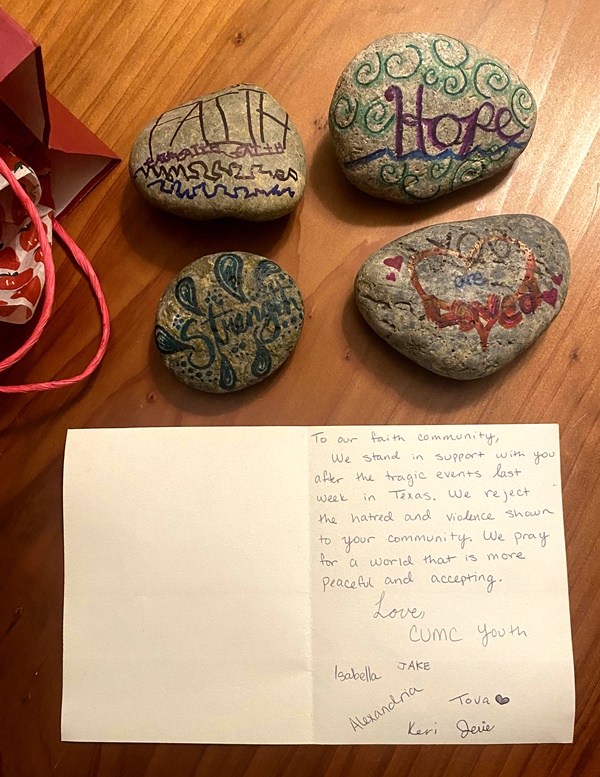 FAITH
Hope
Strength
You
are
Loved
To our faith community,
We stand in support with you
after the tragic events last
week in Texas. We reject
the hatred and violence shown
to your community. We pray
for a world that is more
peaceful and accepting.
Love,
CUMC Youth
Isabella JAKE
Alexandria Tova
Keri